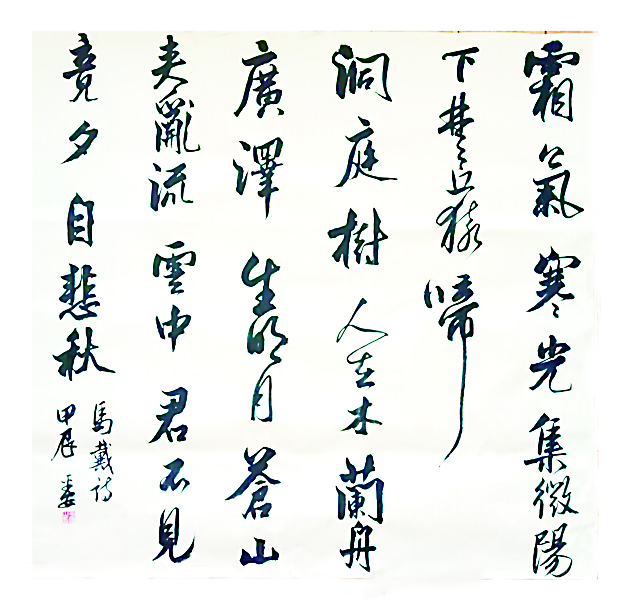 霜氣寒光集微陽
下楚丘猿啼
洞庭樹人在木蘭舟
廣澤生明月蒼山
夾亂流雲中君不見
竟夕自悲秋
馬戴詩
甲辰